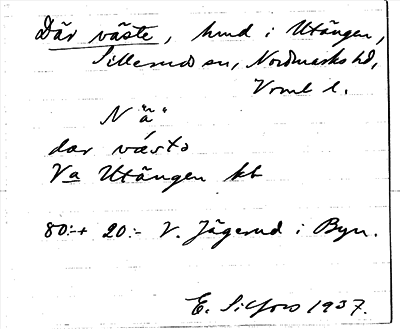 Där väste, hmd i Utängen,
Sillerud sn, Nordmarks hd,
Vrml l.
N "ä"
dar vǽsta
Va Utängen kb
80:- + 20:- V. Jägerud i Byn.
E. Silfors 1937.